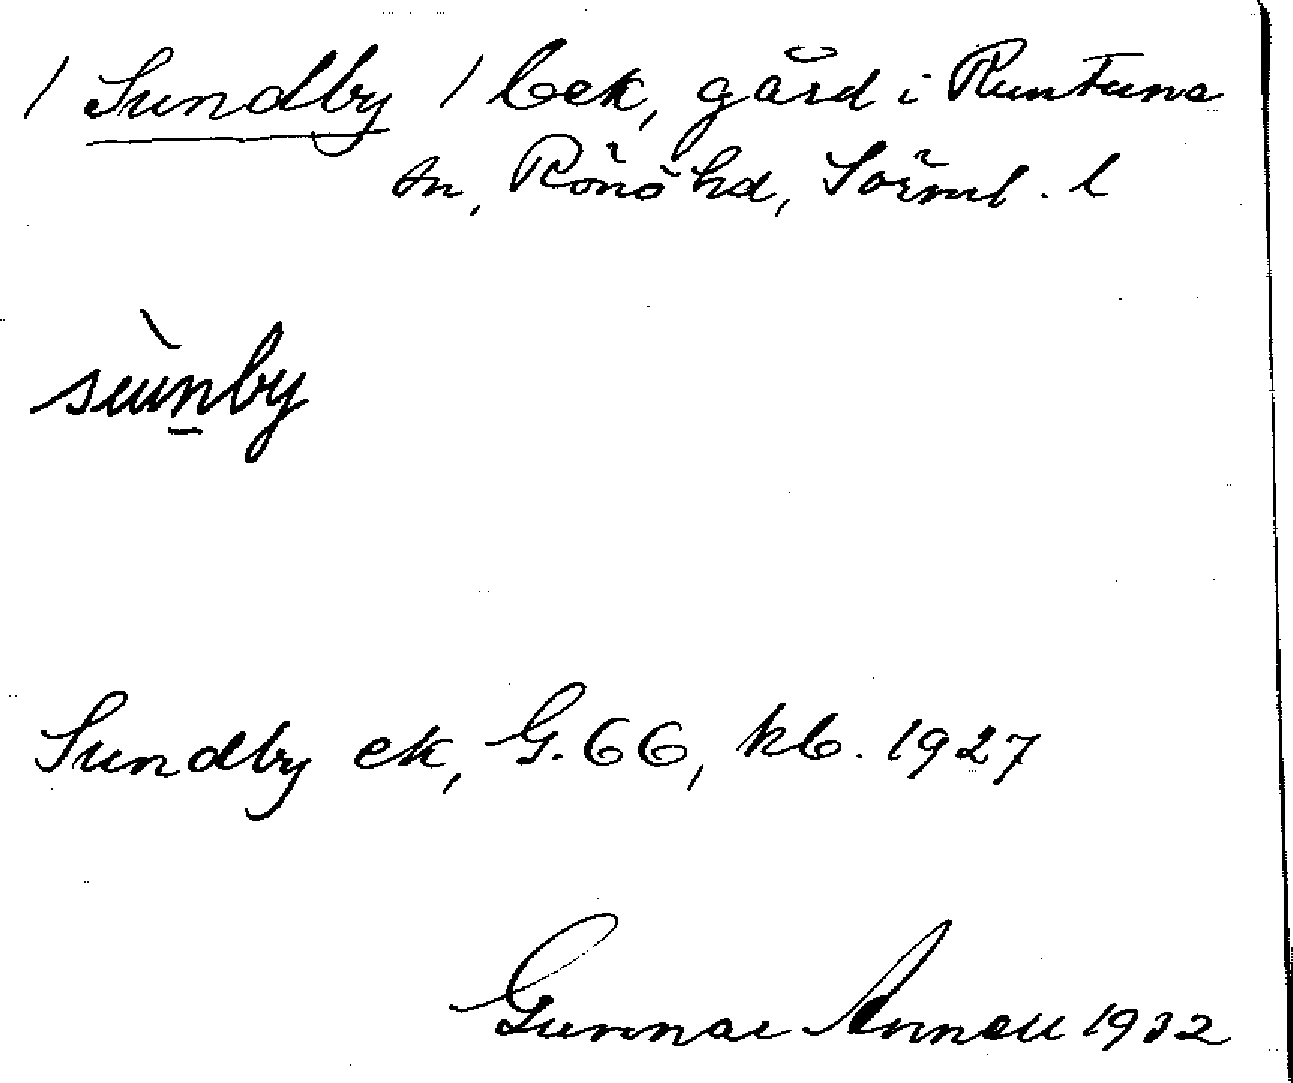 / Sundby / bek, gård i Runtuna
sn, Rönö hd, Sörml. l
sùnby
Sundby ek, G. 66, kb. 1927
Gunnar Annell 1932